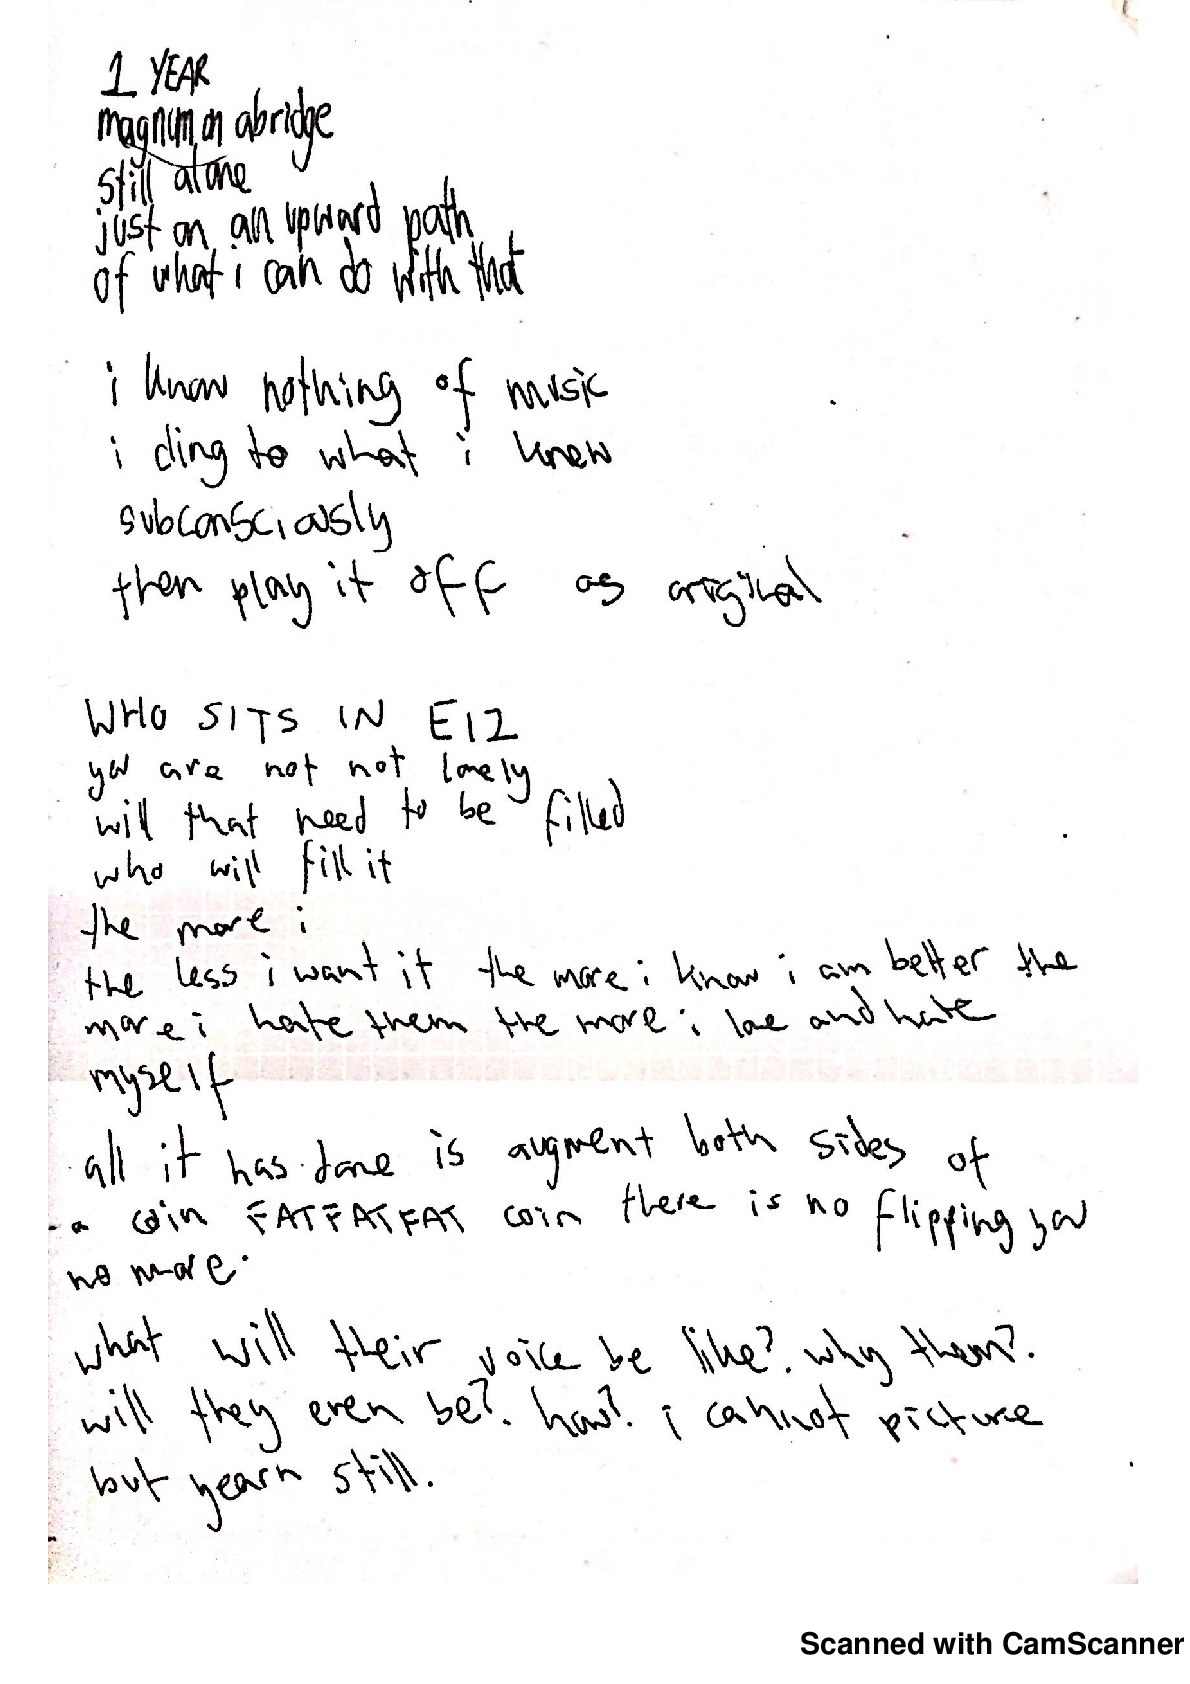 1 YEAR
magnum on abridge
still alone
just on an upward path
of what i can do with that
i know nothing of music
i cling to what i knew
subconsciously
then play it off as original
WHO SITS IN E12
you are not not lonely
will that need to be filled
who will fill it
the more i
the less i want it the more i know i am better the
more i hate them the more i love and hate
myself
all it has done is augment both sides of
a coin FATFATFAT coin there is no flipping you
no more.
what will their voice be like?. why them?.
will they even be?. how?. i cannot picture
but yearn still.
Scanned with CamScanner